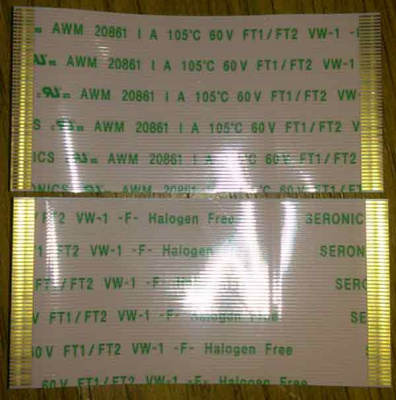 AWM 20861 I A 105℃ 60V FT1/FT2 VW-1 -
AWM 20861 I A 105℃ 60V FT1/FT2 VW-1
AWM 20861 I A 105℃ 60V FT1/FT2 VW-
CS AWM 20861 I A 105℃ 60V FT1/FT2 V
NICS AWM 20861 I A 105℃ 60V FT1/FT2
RONICS AWM 20861 I A 105℃ 60V FT1/FT
/FT2 VW-1 -F- Halogen Free SERONIC
1/FT2 VW-1 -F- Halogen Free SERONI
FT1/FT2 VW-1 -F- Halogen Free SERO
FT1/FT2 VW-1 -F- Halogen Free SER
0V FT1/FT2 VW-1 -F- Halogen Free
60V FT1/FT2 VW-1 -F- Halogen Free